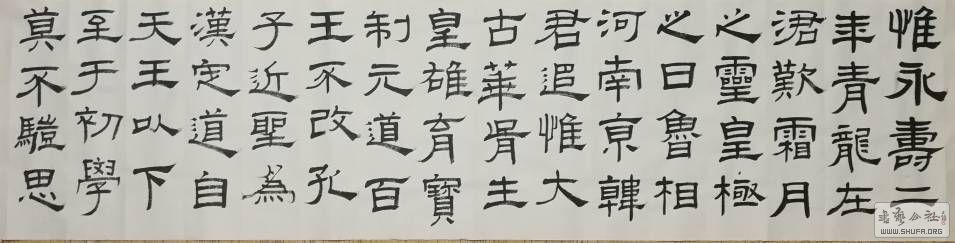 惟永壽二
年青龍在
涒歎霜月
之靈皇極
之日魯相
河南京韓
君追惟大
古華胥生
皇雄育寶
制元道百
王不改孔
子近聖為
漢定道自
天王以下
至于初學
莫不思
书艺公社
WWW.SHUFA.ORG